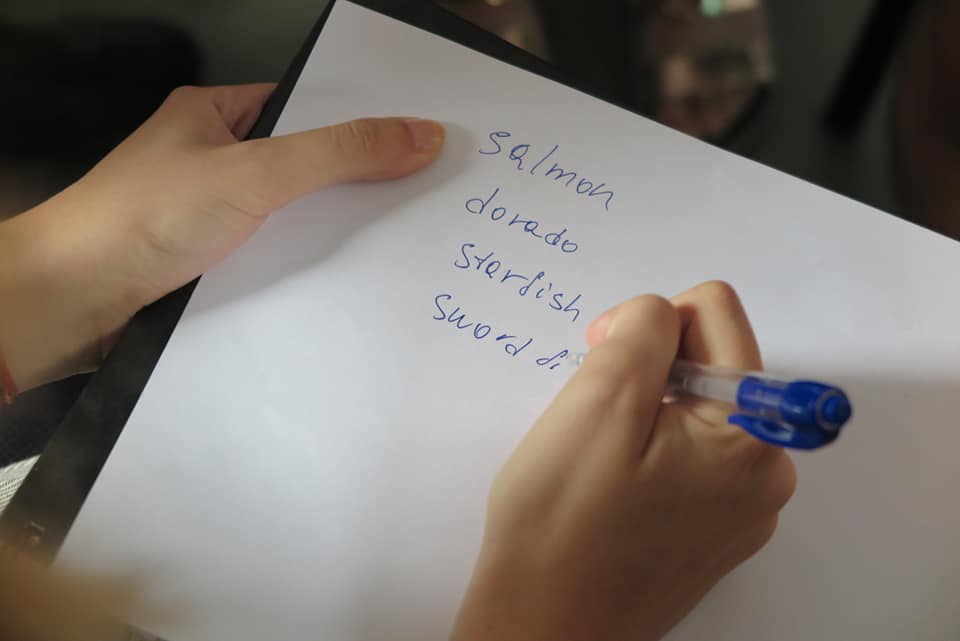 salmon
dorado
starfish
sword fi